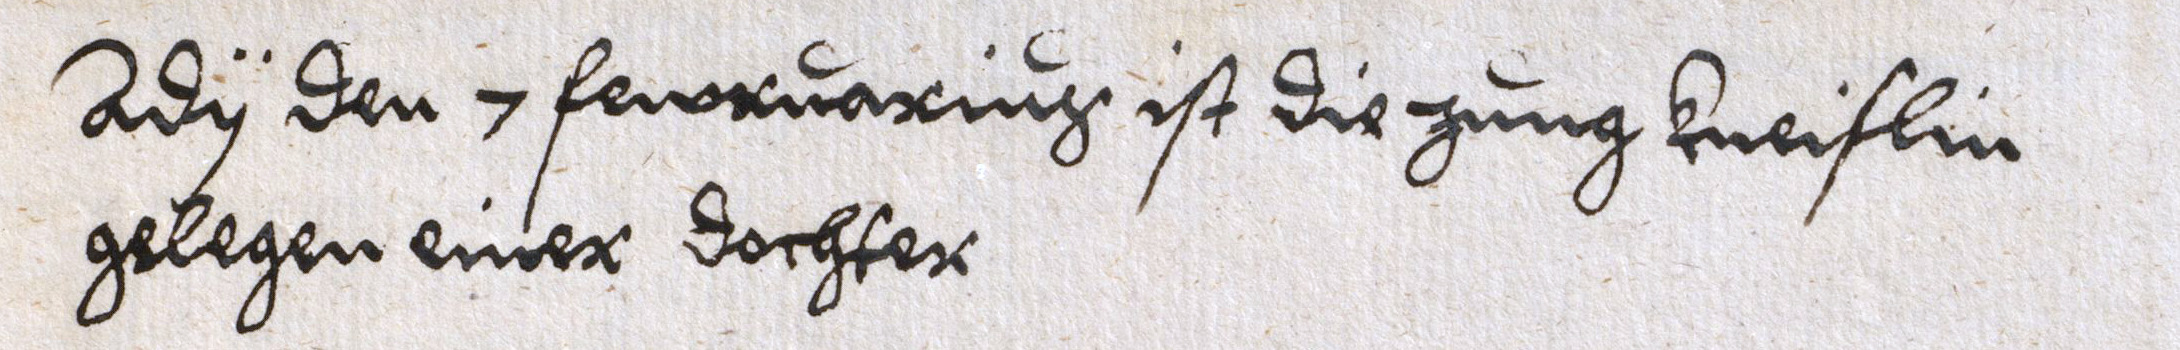 Adÿ den 7 fewruariuz ist die zung kneislin
gelegen einer dochter